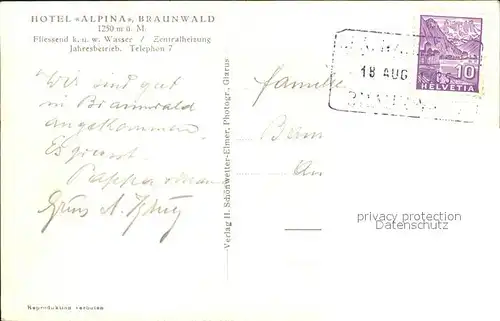 HOTEL «ALPINA», BRAUNWALD
1250 m ü. M.
Fliessend k. u. w. Wasser / Zentralheizung
Jahresbetrieb. Telephon 7
Wir sind gut
in Braunwald
angekommen
Es grüsst
Pappa
Gruss A.
Reproduktion verboten
Verlag H. Schönwetter-Elmer, Photogr., Glarus
Familie
Bern
18 AUG
10
HELVETIA
privacy protection